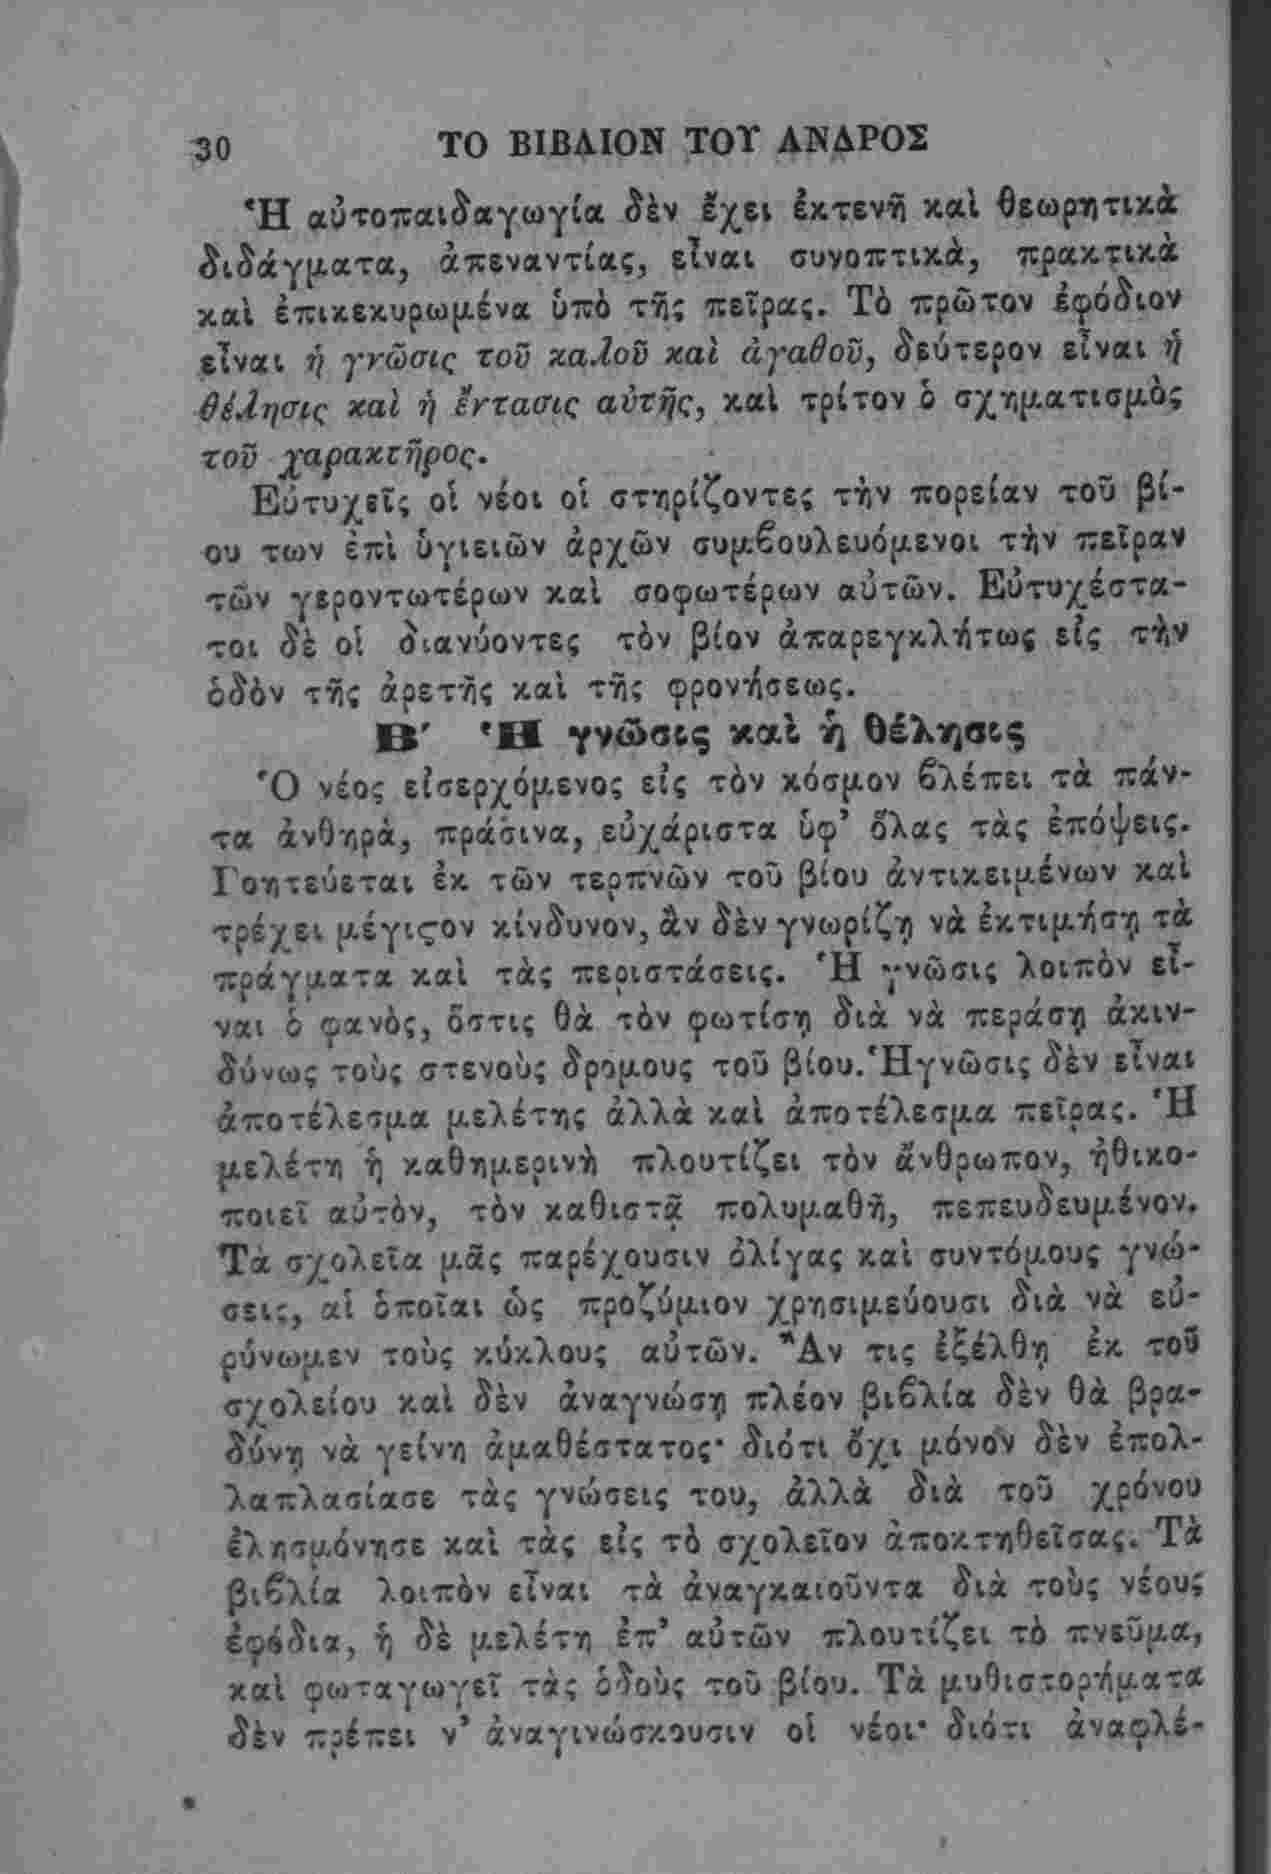 30 ΤΟ ΒΙΒΛΙΟΝ ΤΟΥ ΑΝΔΡΟΣ
Ἡ αὐτοπαιδαγωγία δὲν ἔχει ἐκτενῆ καὶ θεωρητικὰ
διδάγματα, ἀπεναντίας, εἶναι συνοπτικὰ, πρακτικὰ
καὶ ἐπικεκυρωμένα ὑπὸ τῆς πεῖρας. Τὸ πρῶτον ἐφόδιον
εἶναι ἡ γνῶσις τοῦ καλοῦ καὶ ἀγαθοῦ, δεύτερον εἶναι ἡ
θέλησις καὶ ἡ ἔντασις αὐτῆς, καὶ τρίτον ὁ σχηματισμὸς
τοῦ χαρακτῆρος.
Εὐτυχεῖς οἱ νέοι οἱ στηρίζοντες τὴν πορείαν τοῦ βί-
ου των ἐπὶ ὑγιειῶν ἀρχῶν συμϐουλευόμενοι τὴν πεῖραν
τῶν γεροντωτέρων καὶ σοφωτέρων αὐτῶν. Εὐτυχέστα-
τοι δὲ οἱ διανύοντες τὸν βίον ἀπαρεγκλήτως εἰς τὴν
ὁδὸν τῆς ἀρετῆς καὶ τῆς φρονήσεως.
Β′ Ἡ γνῶσις καὶ ἡ θέλησις
Ὁ νέος εἰσερχόμενος εἰς τὸν κόσμον ϐλέπει τὰ πάν-
τα ἀνθηρὰ, πράσινα, εὐχάριστα ὑφ’ ὅλας τὰς ἐπόψεις.
Γοητεύεται ἐκ τῶν τερπνῶν τοῦ βίου ἀντικειμένων καὶ
τρέχει μέγιϛον κίνδυνον, ἂν δὲν γνωρίζῃ νὰ ἐκτιμήσῃ τὰ
πράγματα καὶ τὰς περιστάσεις. Ἡ γνῶσις λοιπὸν εἶ-
ναι ὁ φανὸς, ὅστις θὰ τὸν φωτίσῃ διὰ νὰ περάσῃ ἀκιν-
δύνως τοὺς στενοὺς δρόμους τοῦ βίου. Ἡ γνῶσις δὲν εἶναι
ἀποτέλεσμα μελέτης ἀλλὰ καὶ ἀποτέλεσμα πεῖρας. Ἡ
μελέτη ἡ καθημερινὴ πλουτίζει τὸν ἄνθρωπον, ἠθικο-
ποιεῖ αὐτὸν, τὸν καθιστᾷ πολυμαθῆ, πεπευδευμένον.
Τὰ σχολεῖα μᾶς παρέχουσιν ὀλίγας καὶ συντόμους γνώ-
σεις, αἱ ὁποῖαι ὡς προζύμιον χρησιμεύουσι διὰ νὰ εὐ-
ρύνωμεν τοὺς κύκλους αὐτῶν. Ἂν τις ἐξέλθῃ ἐκ τοῦ
σχολείου καὶ δὲν ἀναγνώσῃ πλέον βιϐλία δὲν θὰ βρα-
δύνῃ νὰ γείνῃ ἀμαθέστατος· διότι ὄχι μόνον δὲν ἐπολ-
λαπλασίασε τὰς γνώσεις του, ἀλλὰ διὰ τοῦ χρόνου
ἐλησμόνησε καὶ τὰς εἰς τὸ σχολεῖον ἀποκτηθεῖσας. Τὰ
βιϐλία λοιπὸν εἶναι τὰ ἀναγκαιοῦντα διὰ τοὺς νέους
ἐφόδια, ἡ δὲ μελέτη ἐπ’ αὐτῶν πλουτίζει τὸ πνεῦμα,
καὶ φωταγωγεῖ τὰς ὁδοὺς τοῦ βίου. Τὰ μυθιστορήματα
δὲν πρέπει ν’ ἀναγινώσκουσιν οἱ νέοι· διότι ἀναφλέ-